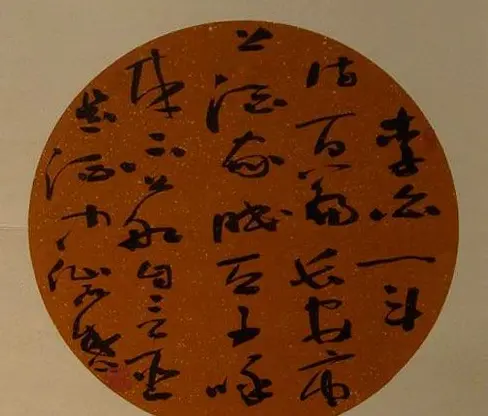 李白一斗
詩百篇長安市
上酒家眠天子呼
來不上船自言臣
是酒中仙